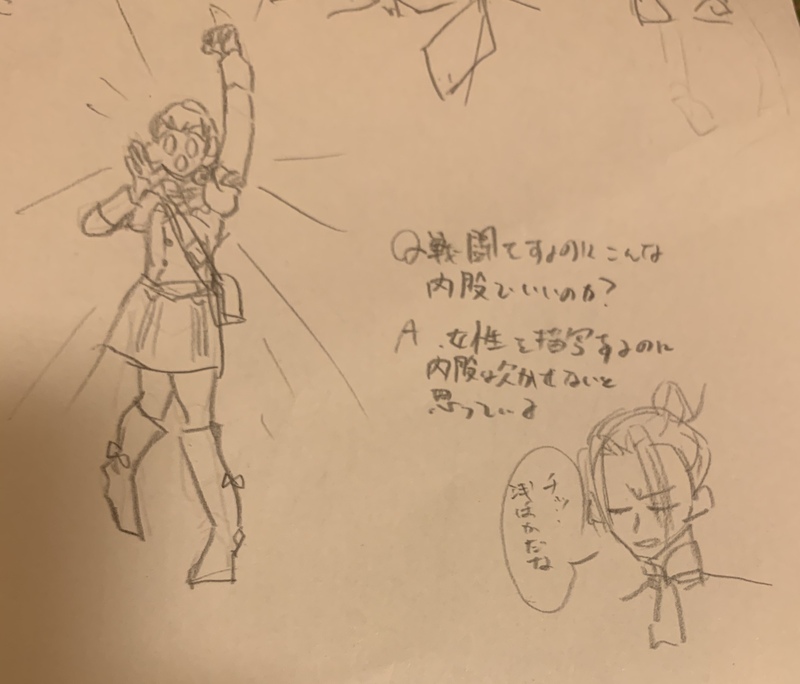 Q 戦闘てするのにこんな
内股でいいのか?
A.女性を描写するのに
内股は欠かせないと
思っている
チッ…
浅はかだな